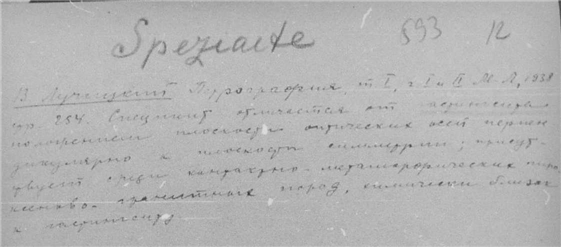 Speziaite 593 12
В. Лучицкий Петрография, т I, ч I и II М-Л, 1938
стр. 254. Специит отличается от
положением плоскости оптических осей перпен
дикулярно к плоскости симметрии; присут-
ствует среди контактно-метаморфических пиро
ксеново-гранатных пород, химически близок
к гастингситу